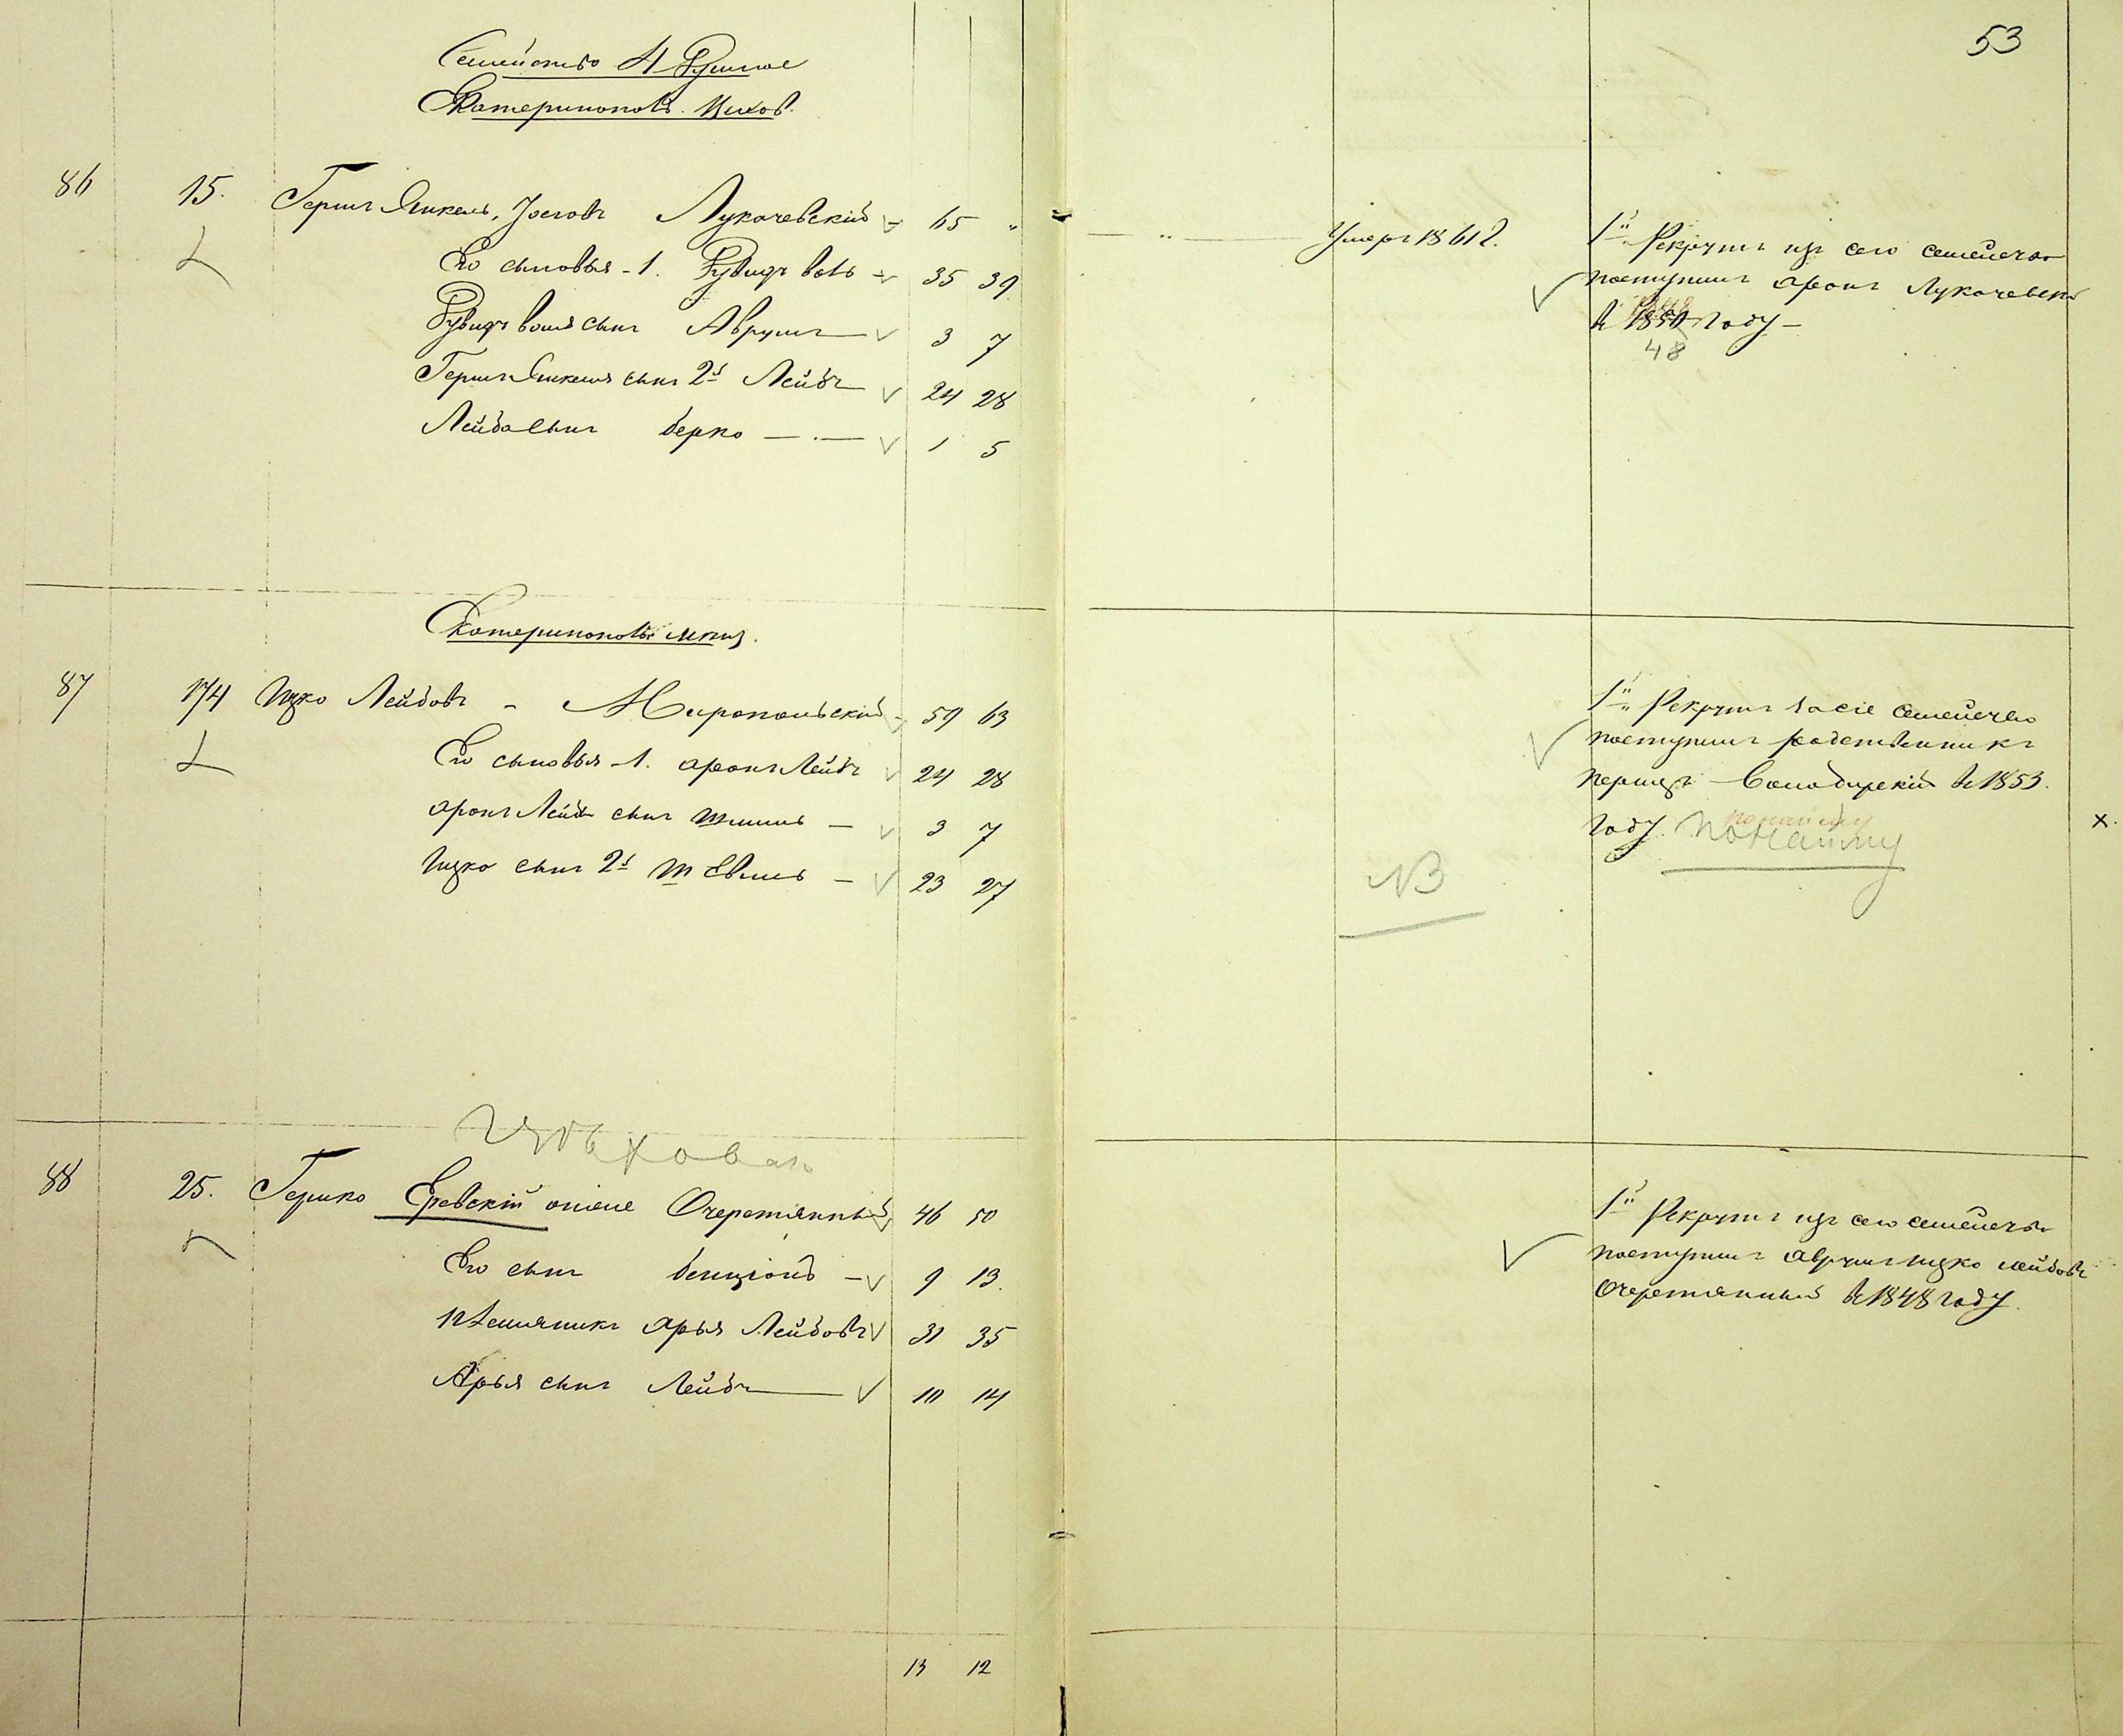 53
Семейство 4 Душное
Екатериноповс.
86 15. Гершъ Янкель, Іосговъ Лукачевскій 65 "
Его сыновья - 1. Рувидъ Вовъ 35 39
Рувидъ Вовля сынъ Аврумъ 3 7
Гершъ Янкеля сынъ 2й Лейба 24 28
Лейба сынъ Берко 1 5
Умеръ 1861 г.
1й Рекрутъ изъ сего семейства
поступилъ Аронъ Лукачевскій
въ 1850 году -
48
Екатериноповс. мѣщ.
87 174 Ицко Лейбовъ - Миропольскій 59 63
Его сыновья - 1. Аронъ Лейба 24 28
Аронъ Лейба сынъ Шмиль - 3 7
Ицко сынъ 2й Шевель - 23 27
NB
1й Рекрутъ за сіе семейство
поступилъ родственникъ
Перицъ Володирскій въ 1853.
году. по найму
х.
88 25. Гершко Еревскій опіеле Очеретянный 46 50
Его сынъ Бенціонъ - 9 13.
племянникъ Арья Лейбовъ 31 35
Арья сынъ Лейба 10 14
1й Рекрутъ изъ сего семейства
поступилъ Аврумъ Ицко Лейбовъ
Очеретянный въ 1848 году.
13 12